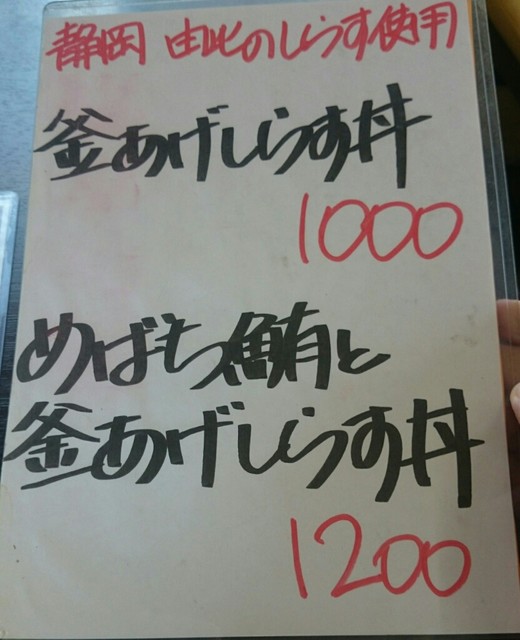 静岡 由比のしらす使用
釜あげしらす丼
1000
めばち鮪と
釜あげしらす丼
1200